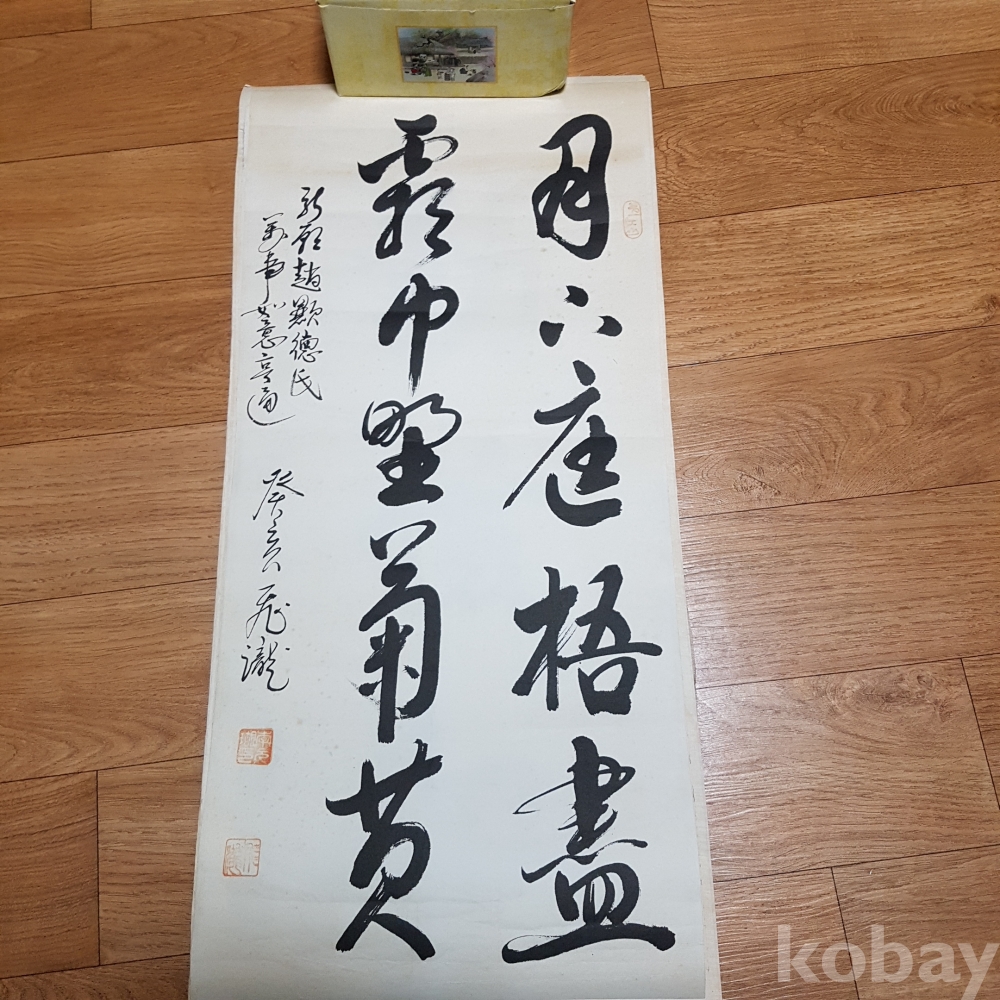 月下庭梧盡
霜中野菊黃
祈願趙顯德氏
萬事如意亨通
癸亥 飛瀧
kobay